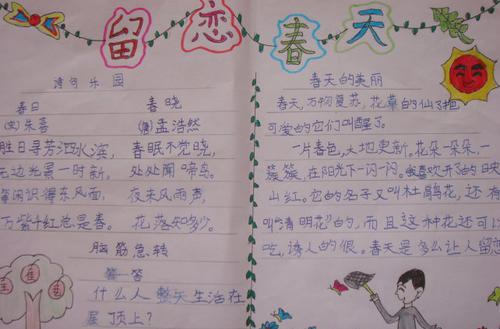 留恋春天
诗句乐园
春日 春晓
(宋)朱熹 (唐)孟浩然
胜日寻芳泗水滨, 春眠不觉晓,
无边光景一时新, 处处闻啼鸟。
等闲识得东风面, 夜来风雨声,
万紫千红总是春。 花落知多少。
脑筋急转
什么人整天生活在
屋顶上?
春天的美丽
春天,万物复苏,花草的仙子把
可爱的它们叫醒了。
一片春色,大地更新,花朵一朵朵,一
簇簇,在阳光下一闪一闪。我喜欢开了的日天
山红。它的名子又叫杜鹃花,还有
叫“清明花”的,而且这种花还可以
吃,诱人的很。春天是多么让人留恋